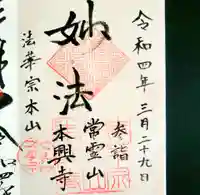 令和四年三月二十九日
参詣
常霊山
妙法
本興寺
法華宗本山